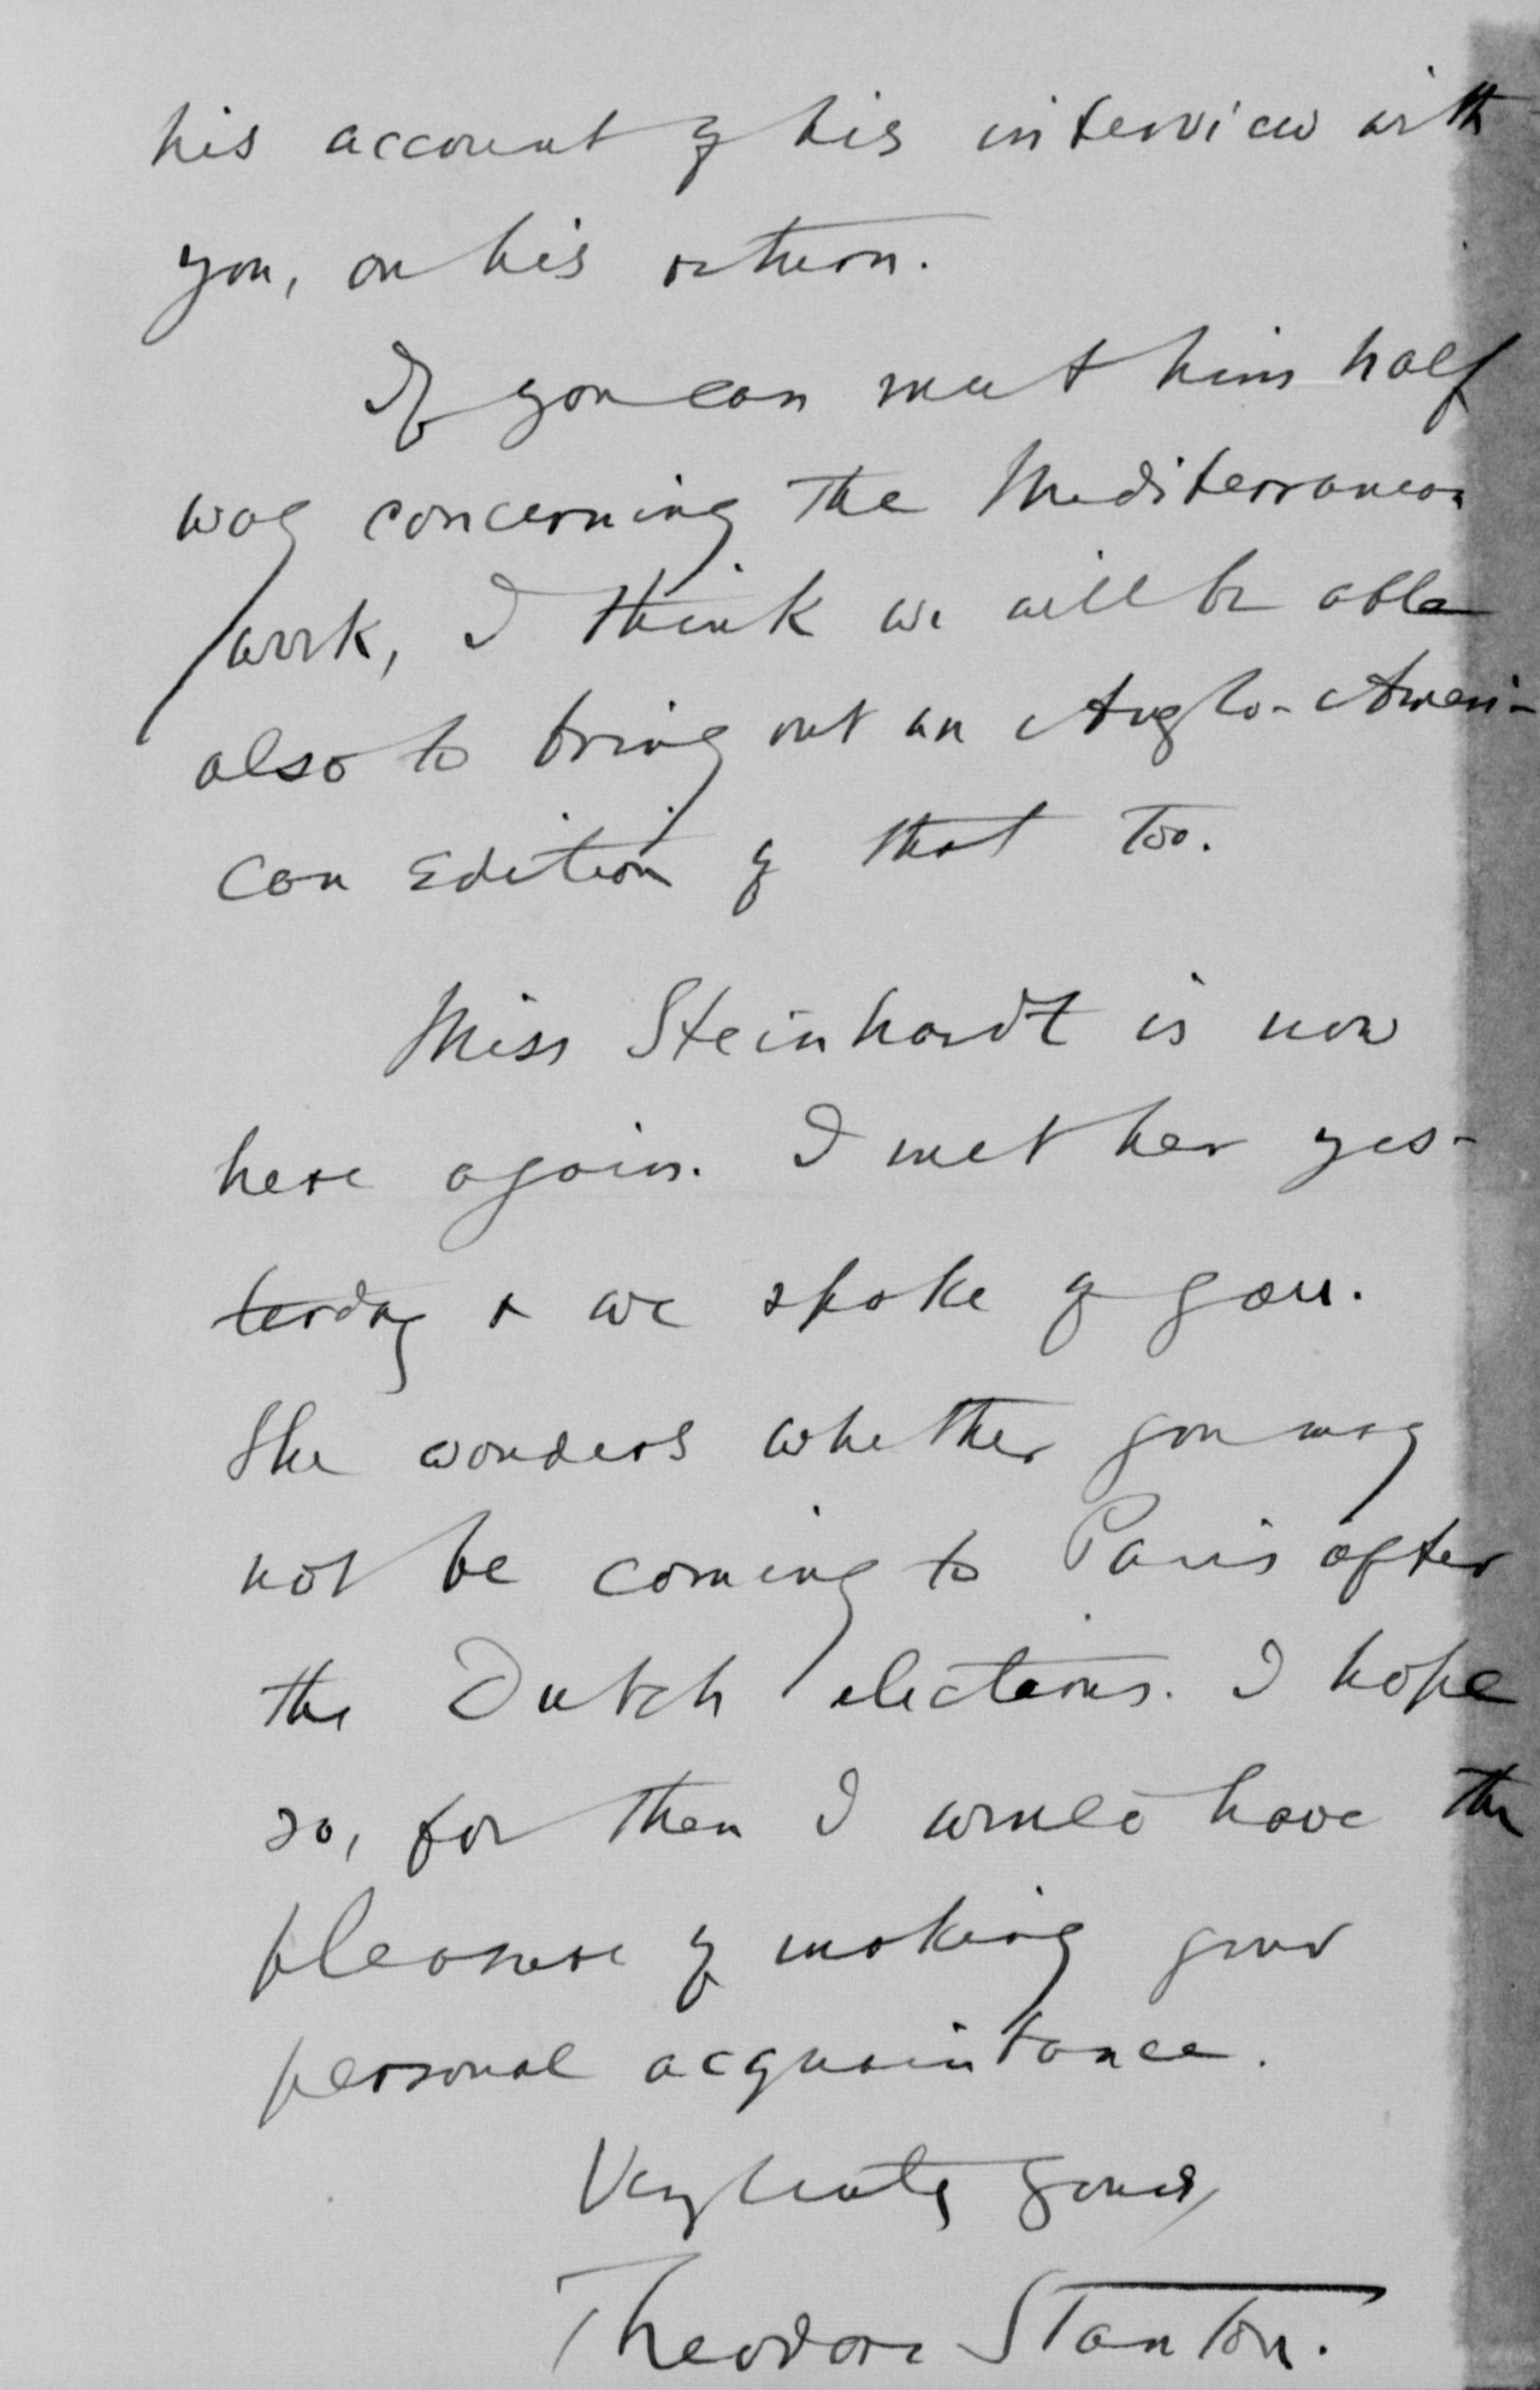 his account of his interview with
you, on his return.
If you can meet him half
way concerning the Mediterranean
work, I think we will be able
also to bring out an Anglo-Ameri-
can edition of that too.
Miss Steinhardt is now
here again. I met her yes-
terday & we spoke of you.
She wonders whether you may
not be coming to Paris after
the Dutch elections. I hope
so, for then I would have the
pleasure of making your
personal acquaintance.
Very truly yours,
Theodore Stanton.